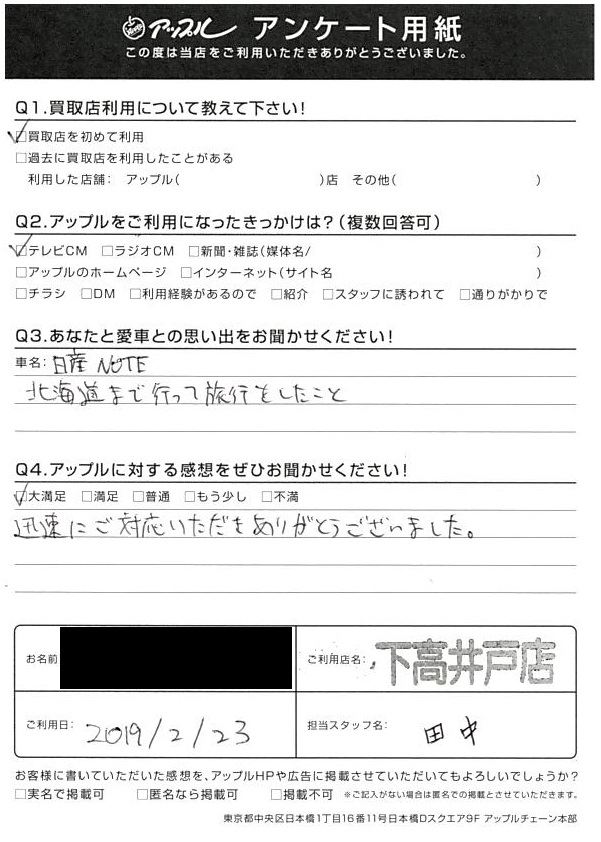 アップル アンケート用紙
この度は当店をご利用いただきありがとうございました。
Q1.買取店利用について教えて下さい!
□買取店を初めて利用
□過去に買取店を利用したことがある
利用した店舗: アップル( )店 その他( )
Q2.アップルをご利用になったきっかけは?(複数回答可)
□テレビCM □ラジオCM □新聞・雑誌(媒体名/ )
□アップルのホームページ □インターネット(サイト名 )
□チラシ □DM □利用経験があるので □紹介 □スタッフに誘われて □通りがかりで
Q3.あなたと愛車との思い出をお聞かせください!
車名: 日産 NOTE
北海道まで行って旅行をしたこと
Q4.アップルに対する感想をぜひお聞かせください!
□大満足 □満足 □普通 □もう少し □不満
迅速にご対応いただきありがとうございました。
お名前 ご利用店名: 下高井戸店
ご利用日: 2019/2/23 担当スタッフ名: 田中
お客様に書いていただいた感想を、アップルHPや広告に掲載させていただいてもよろしいでしょうか?
□実名で掲載可 □匿名なら掲載可 □掲載不可 ※ご記入がない場合は匿名での掲載とさせていただきます。
東京都中央区日本橋1丁目16番11号日本橋Dスクエア9F アップルチェーン本部